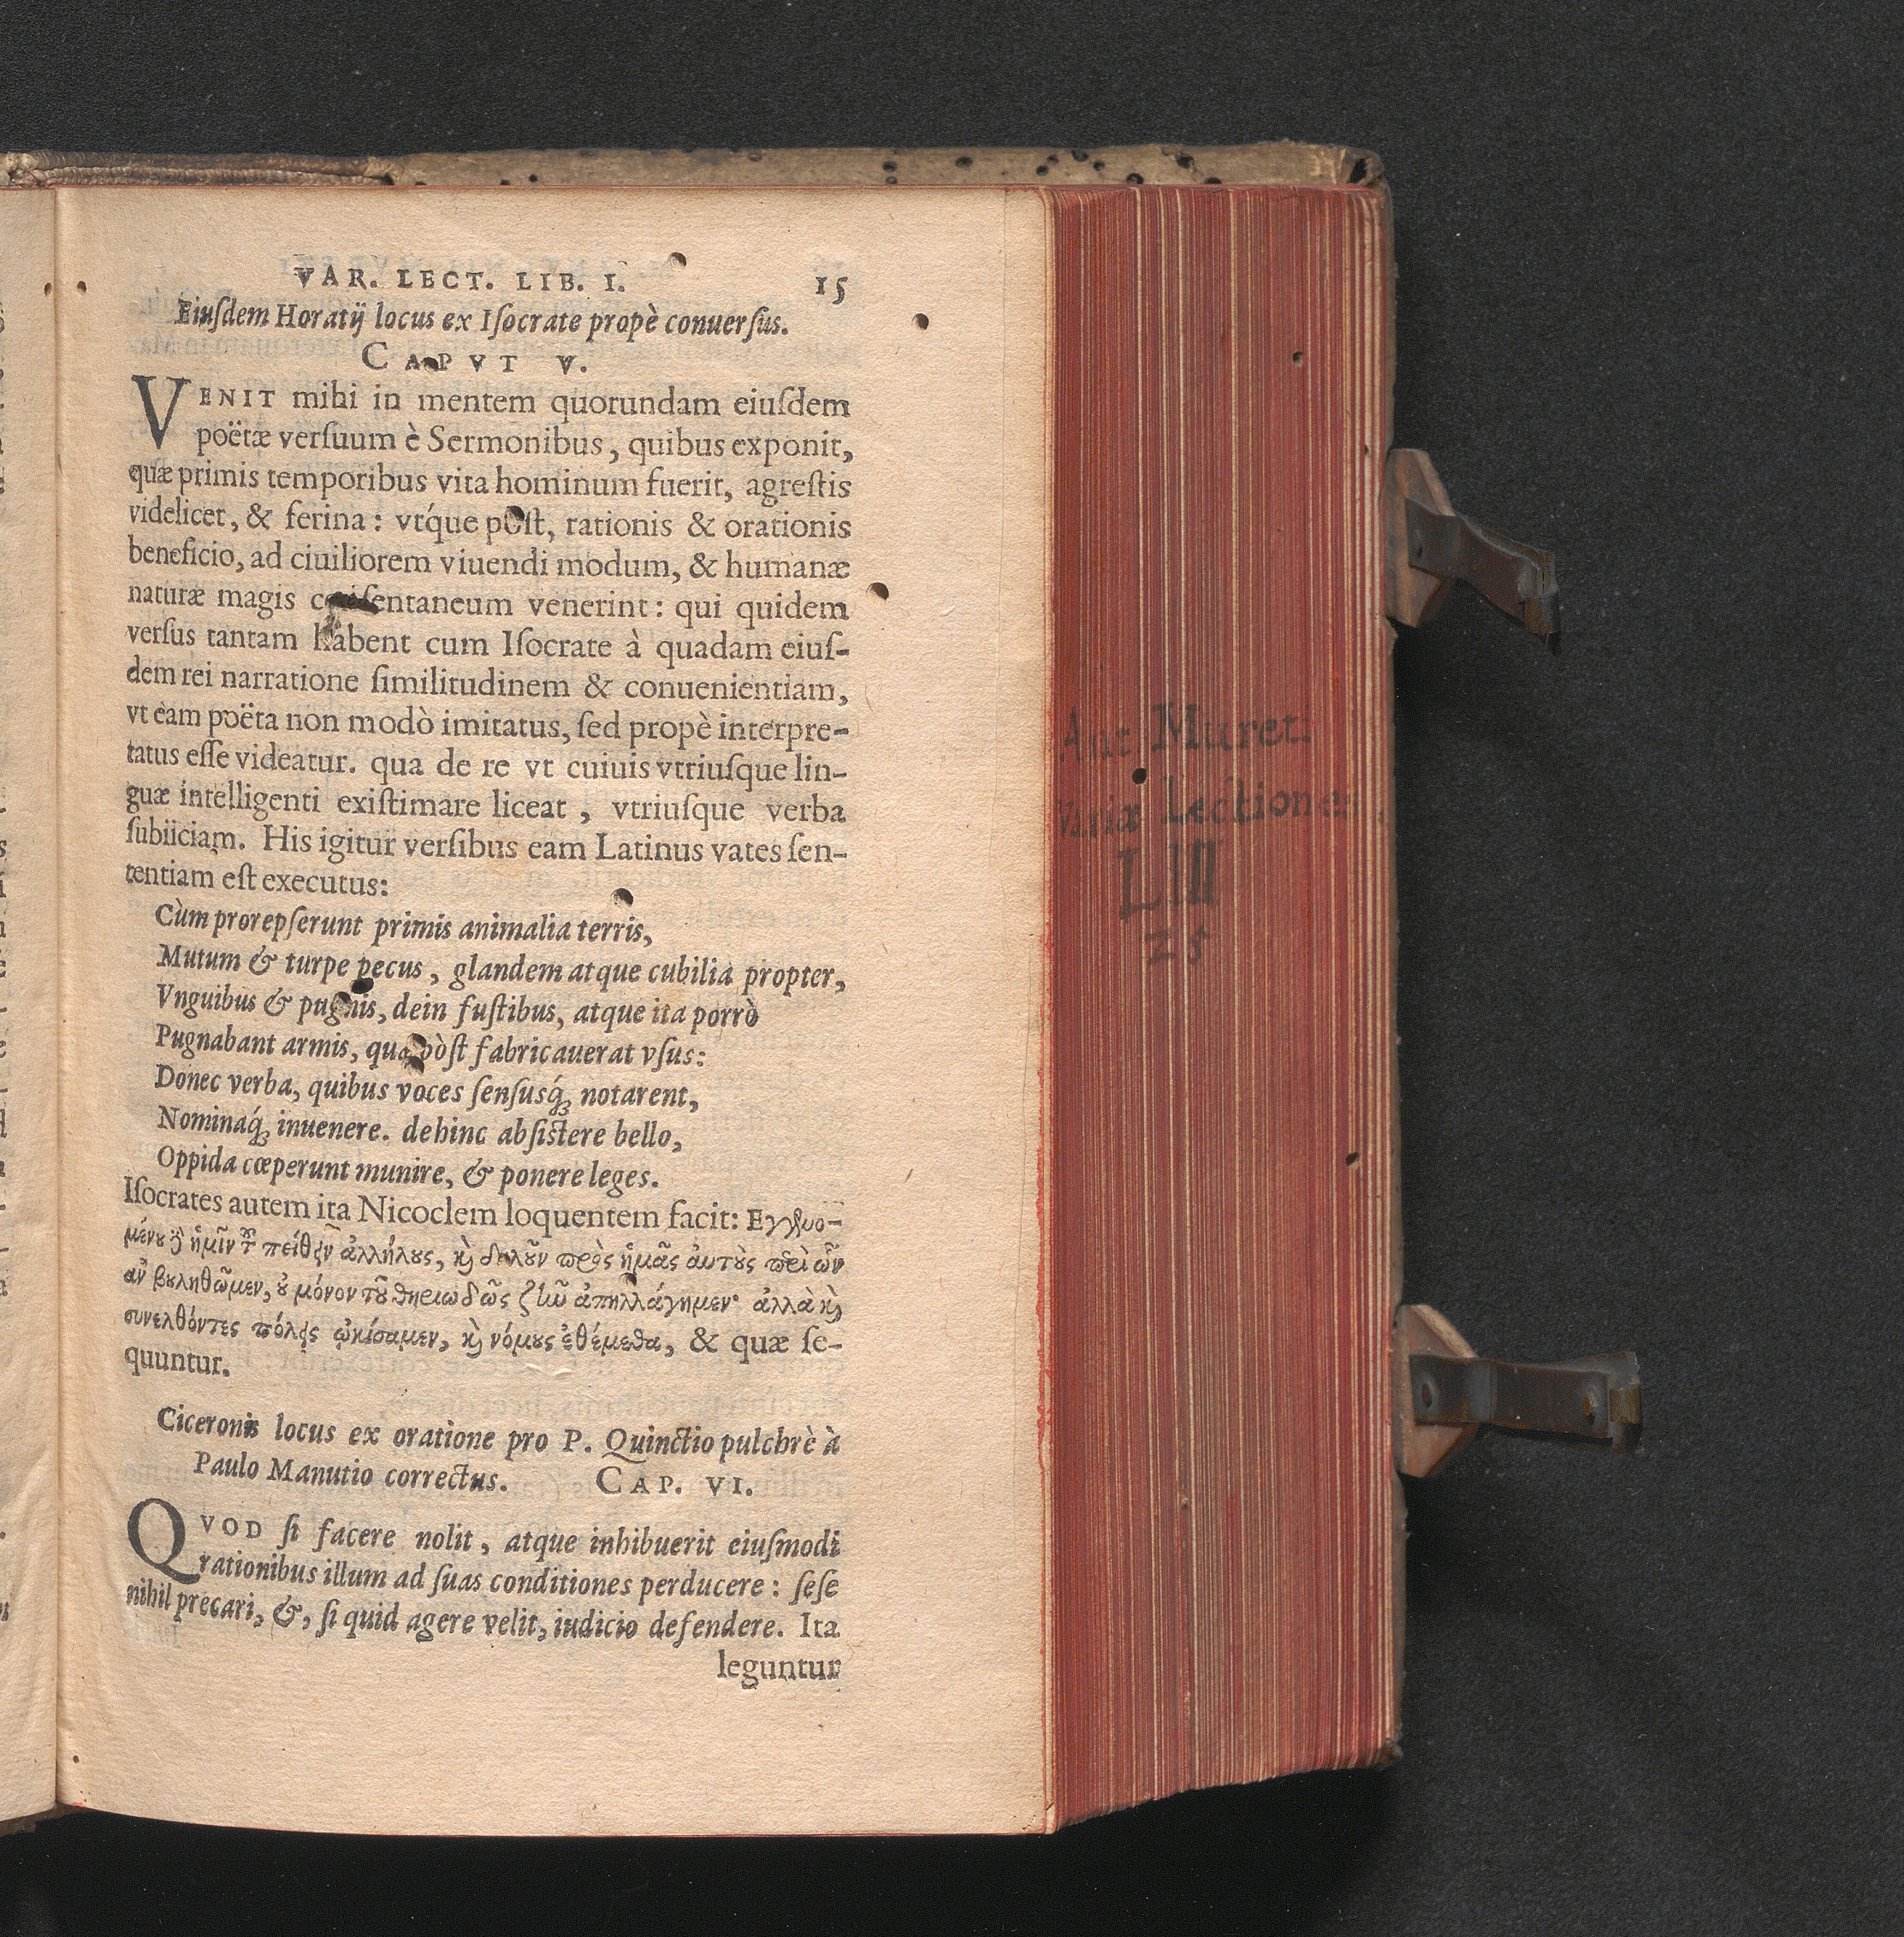 VAR. LECT. LIB. I. 15
Eiuſdem Horatij locus ex Iſocrate propè conuerſus.
CAPVT V.
VENIT mihi in mentem quorundam eiuſdem
poëtæ verſuum è Sermonibus, quibus exponit,
quæ primis temporibus vita hominum fuerit, agreſtis
videlicet, & ferina: vtq́ue póſt, rationis & orationis
beneficio, ad ciuiliorem viuendi modum, & humanæ
naturæ magis conſentaneum venerint: qui quidem
verſus tantam habent cum Iſocrate à quadam eiuſ-
dem rei narratione ſimilitudinem & conuenientiam,
vt eam poëta non modò imitatus, ſed propè interpre-
tatus eſſe videatur. qua de re vt cuiuis vtriuſque lin-
guæ intelligenti exiſtimare liceat, vtriuſque verba
ſubiiciam. His igitur verſibus eam Latinus vates ſen-
tentiam eſt executus:
Cùm prorepſerunt primis animalia terris,
Mutum & turpe pecus, glandem atque cubilia propter,
Vnguibus & pugnis, dein fuſtibus, atque ita porrò
Pugnabant armis, quæ pòſt fabricauerat vſus:
Donec verba, quibus voces ſenſusq́; notarent,
Nominaq́; inuenere. dehinc abſiſtere bello,
Oppida cœperunt munire, & ponere leges.
Iſocrates autem ita Nicoclem loquentem facit: Εγγενο-
μένου δ' ἡμῖν τοῦ πείθειν ἀλλήλους, καὶ δηλοῦν πρὸς ἡμᾶς αὐτοὺς περὶ ὧν
ἂν βουληθῶμεν, οὐ μόνον τοῦ θηριωδῶς ζῆν ἀπηλλάγημεν· ἀλλὰ καὶ
συνελθόντες πόλεις ᾠκίσαμεν, καὶ νόμους ἐθέμεθα, & quæ ſe-
quuntur.
Ciceronis locus ex oratione pro P. Quinctio pulchrè à
Paulo Manutio correctus. CAP. VI.
QVOD ſi facere nolit, atque inhibuerit eiuſmodi
rationibus illum ad ſuas conditiones perducere: ſeſe
nihil precari, &, ſi quid agere velit, iudicio defendere. Ita
leguntur
Ant Muret.
Variæ Lectiones
LIII
25